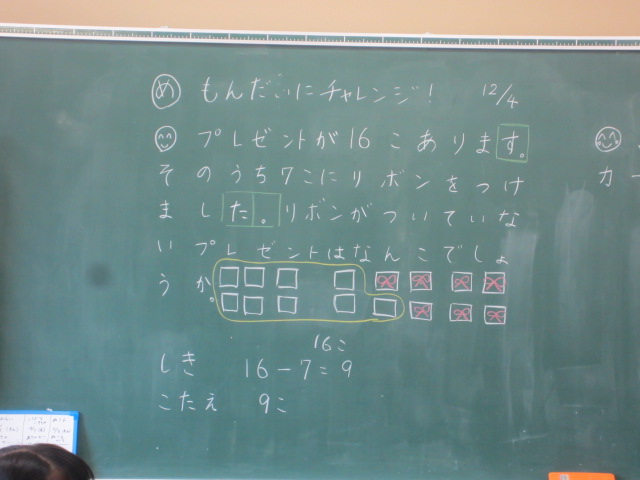 め もんだいにチャレンジ! 12/4
プレゼントが16こあります。
そのうち7こにリボンをつけ
ました。リボンがついていな
いプレゼントはなんこでしょ
うか。
16こ
しき 16-7=9
こたえ 9こ
カ